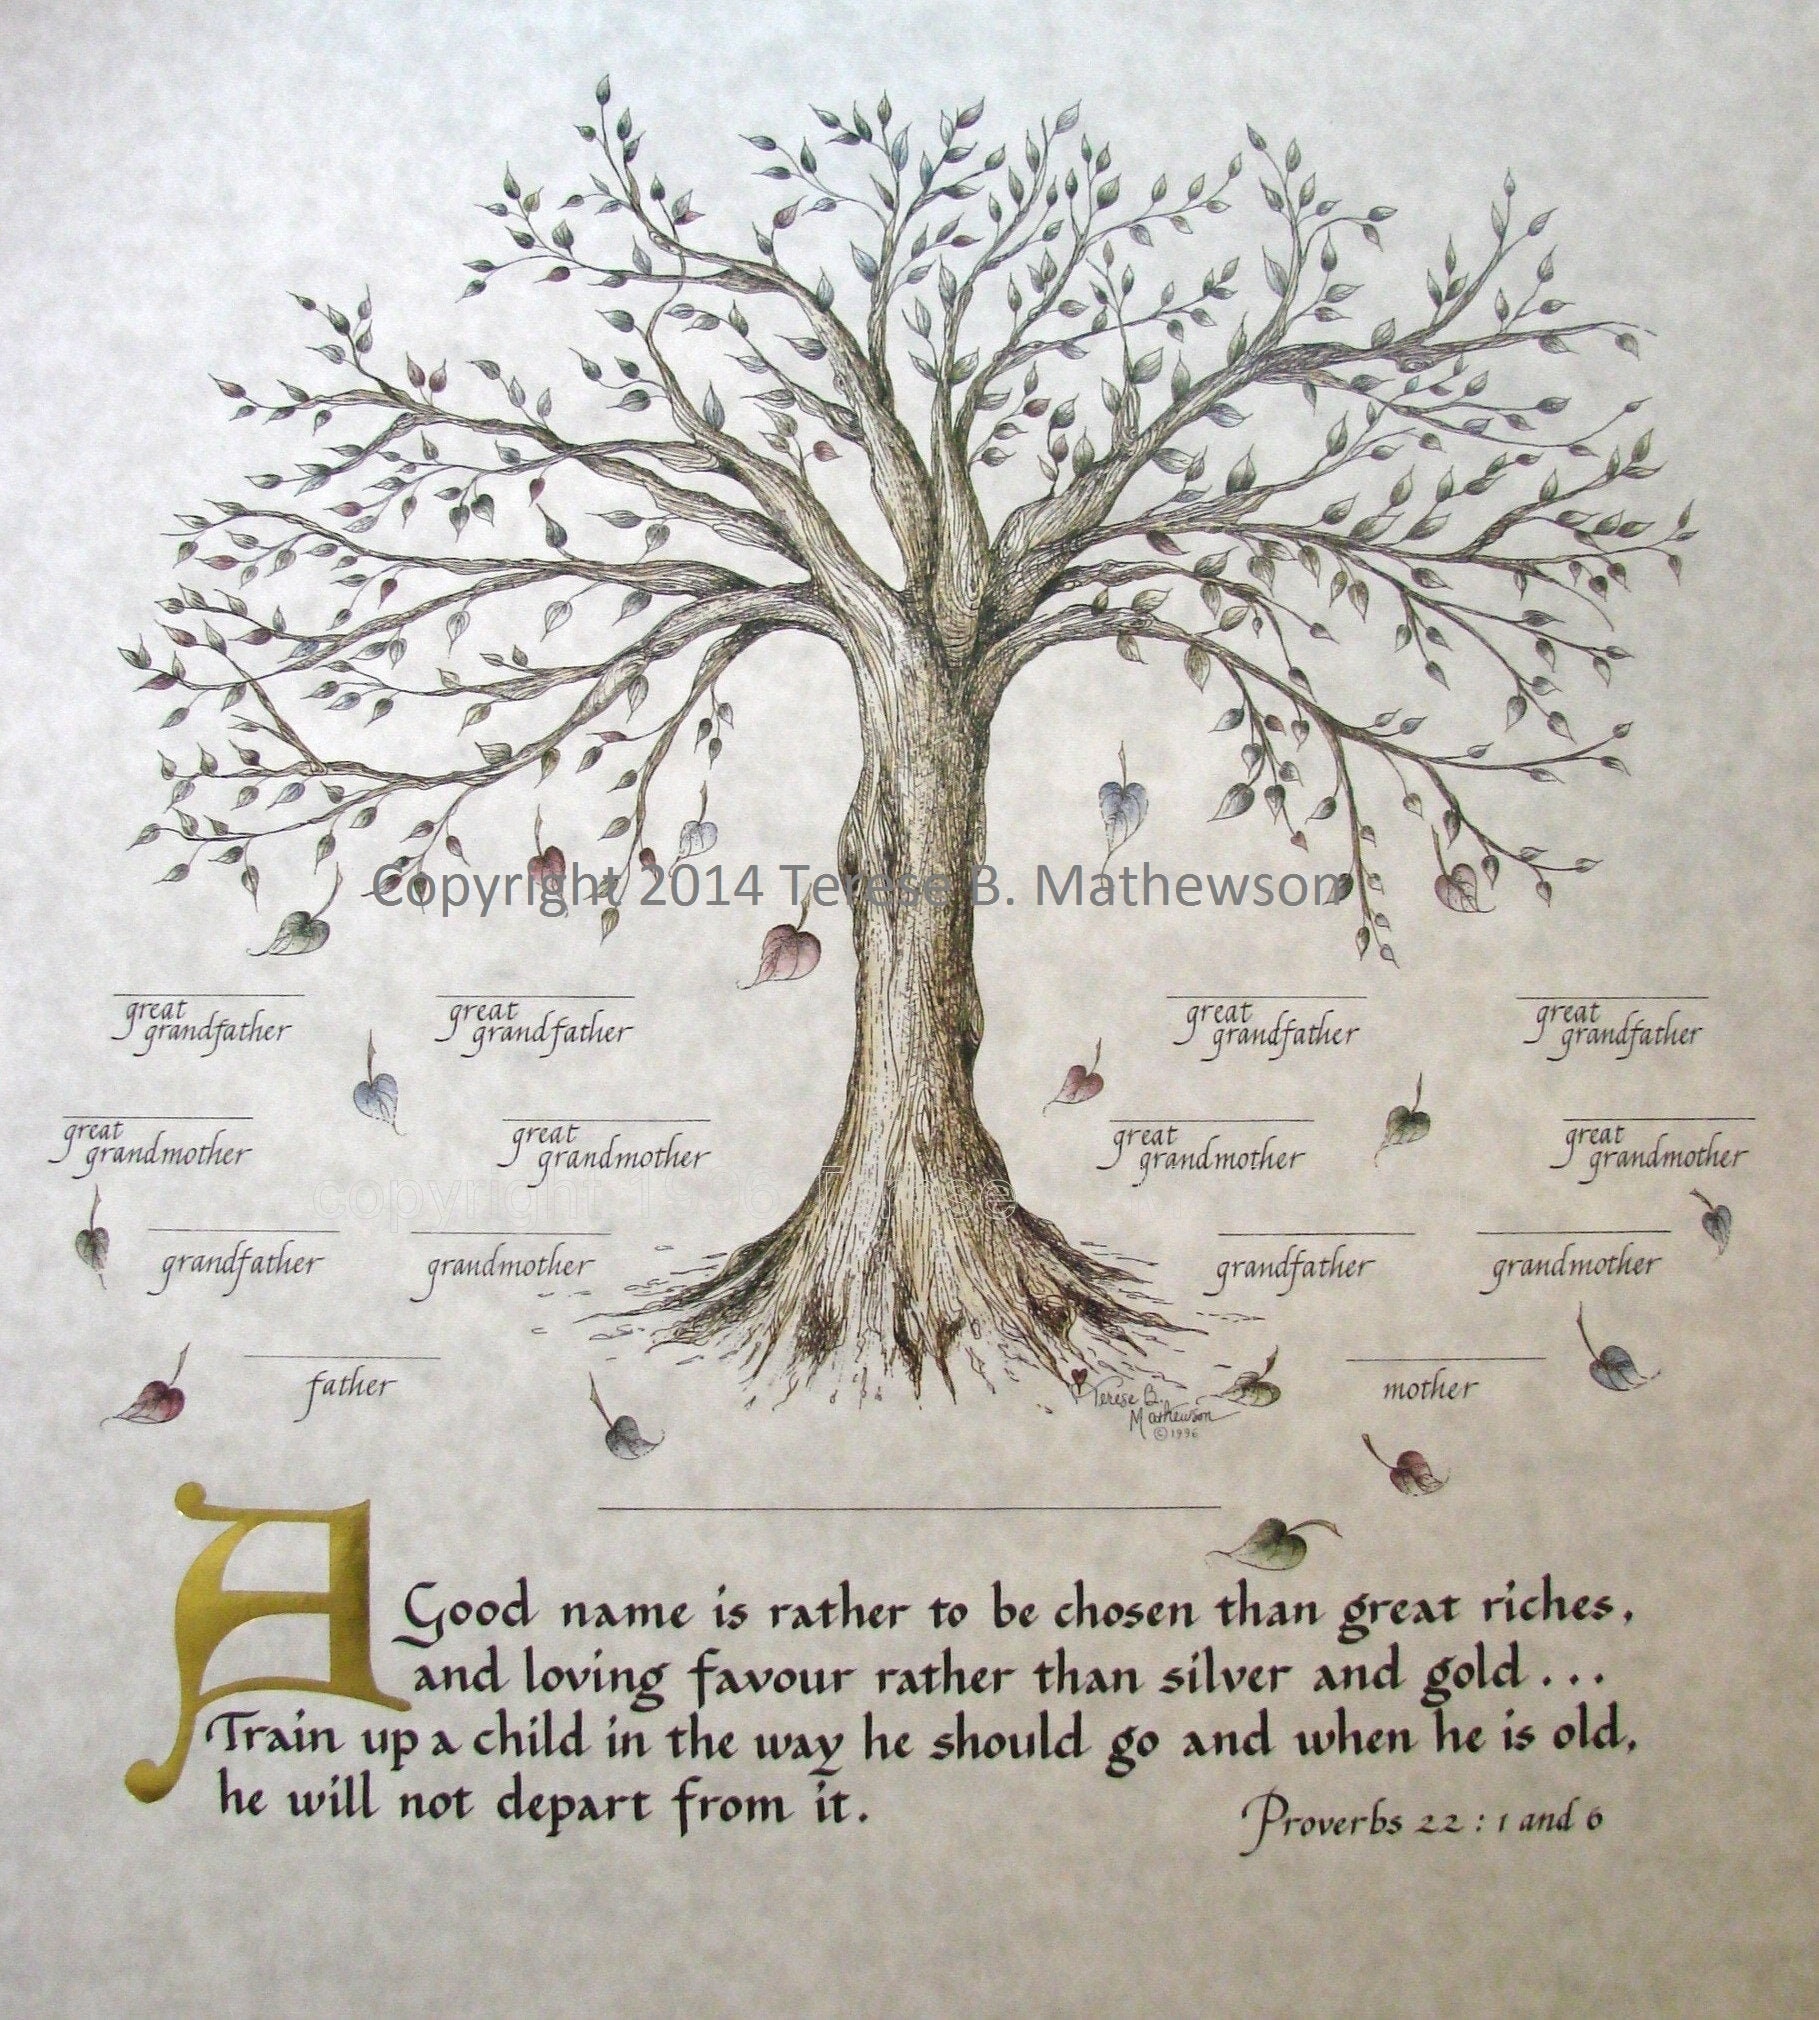 Copyright 2014 Terese B. Mathewson
great great great great
grandfather grandfather grandfather grandfather
great great great great
grandmother grandmother grandmother grandmother
copyright 1996 Terese
grandfather grandmother grandfather grandmother
father mother
Terese B.
Mathewson
©1996
A Good name is rather to be chosen than great riches,
and loving favour rather than silver and gold...
Train up a child in the way he should go and when he is old,
he will not depart from it.
Proverbs 22:1 and 6